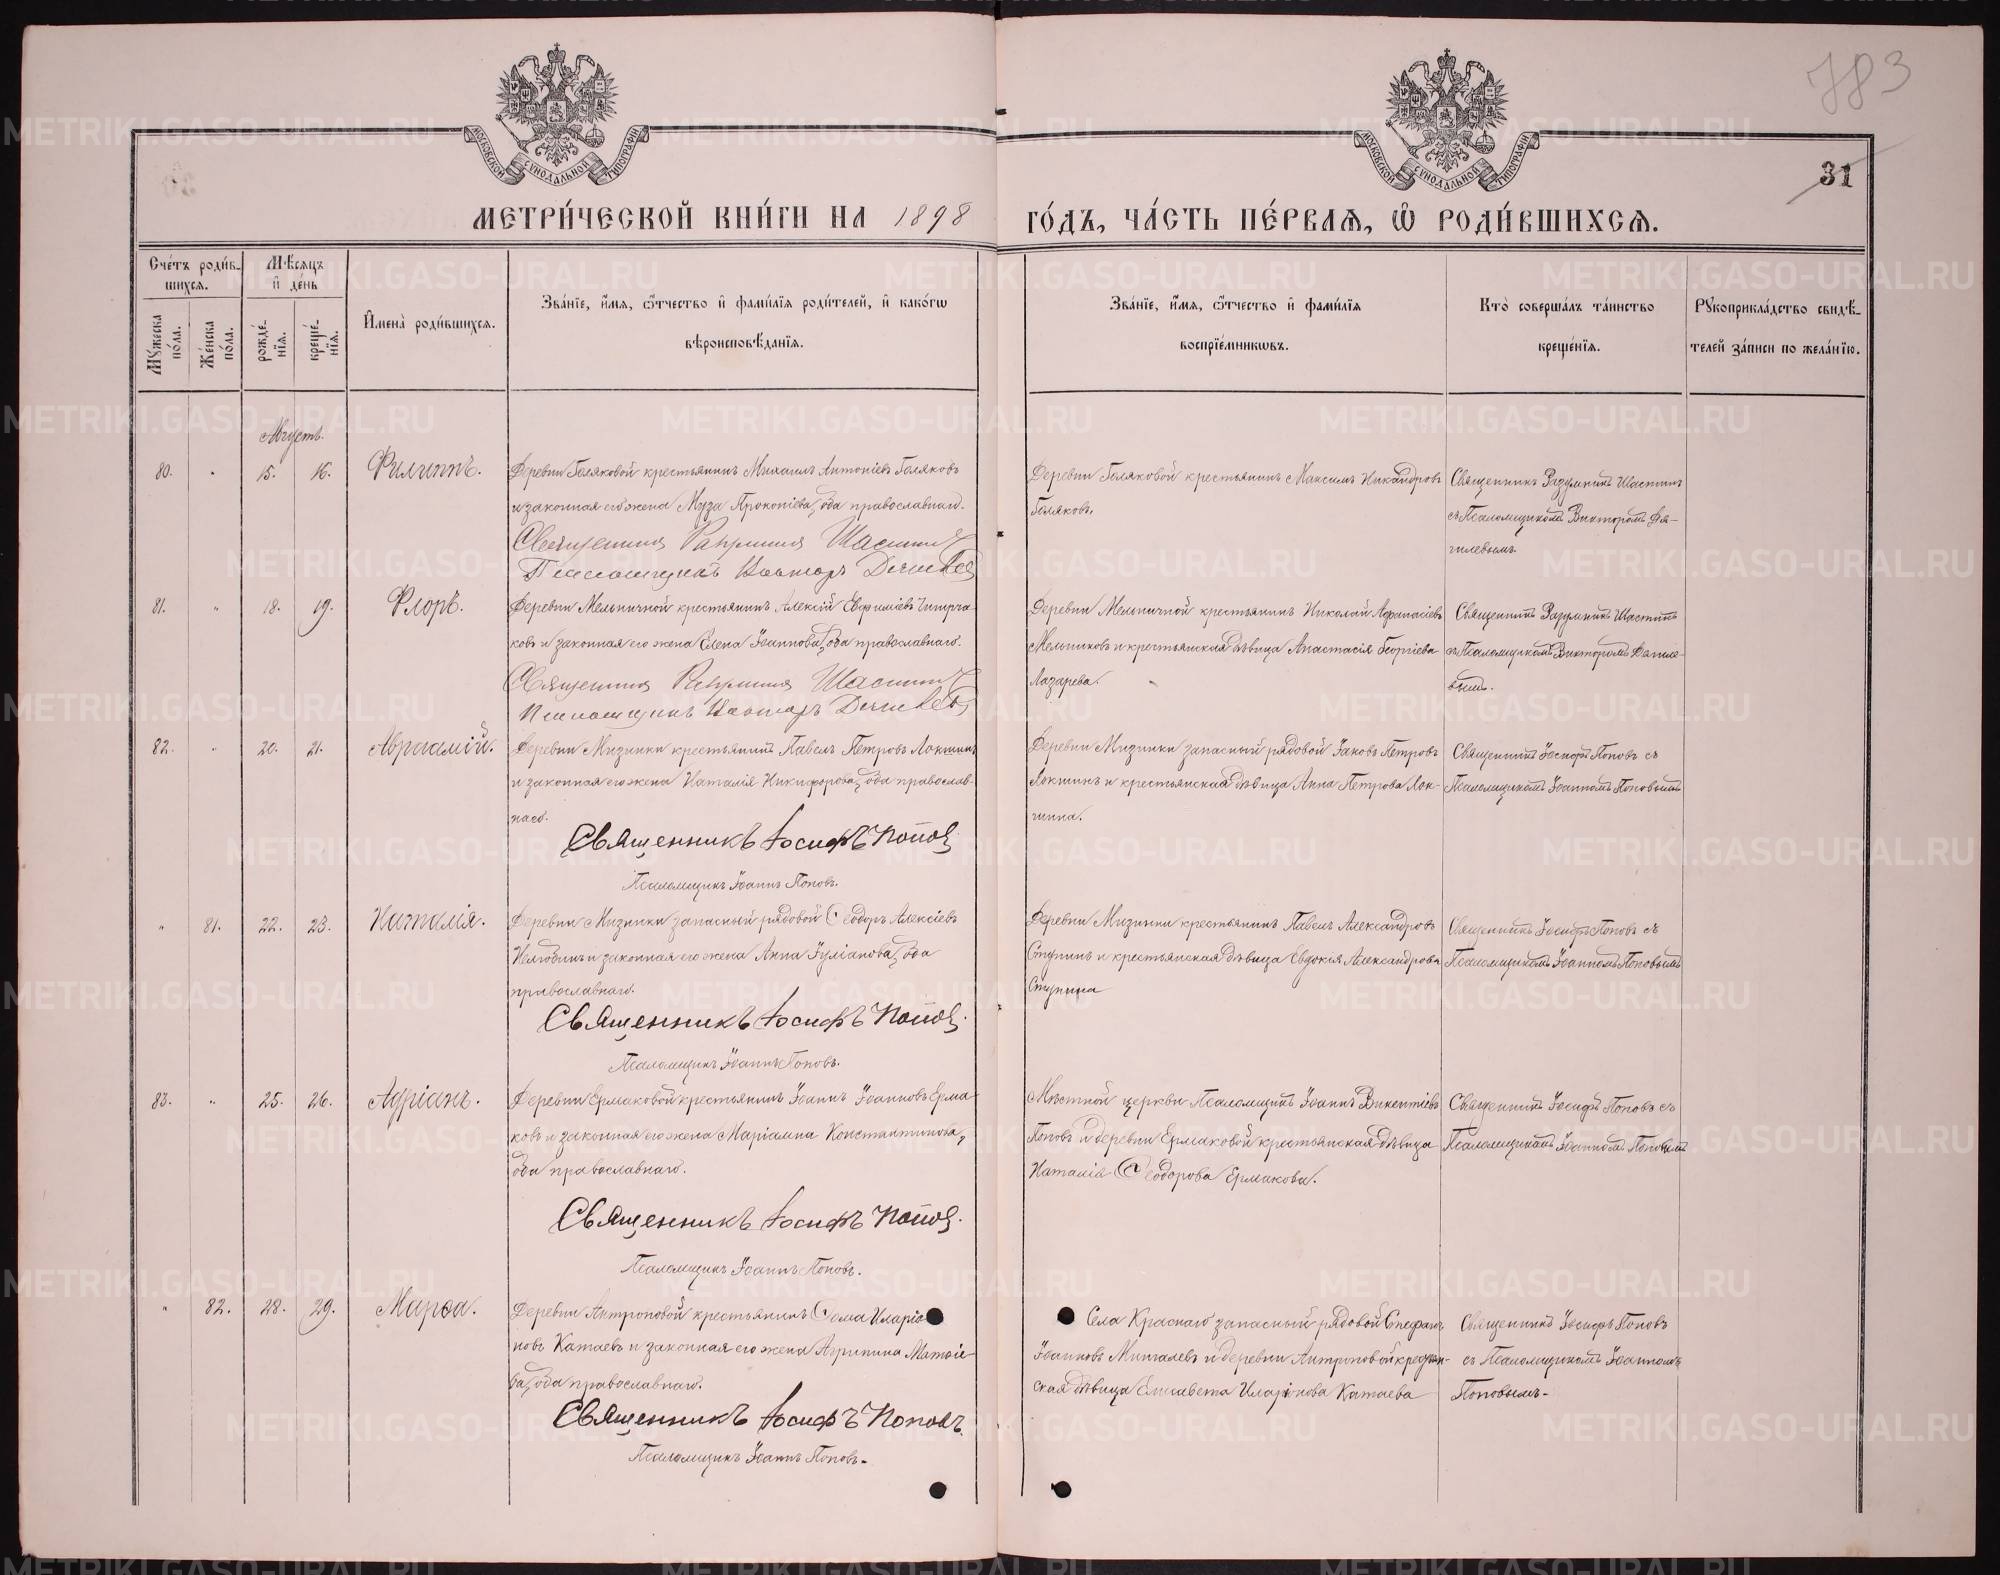 783
31
МОСКОВСКОЙ СУНОДАЛЬНОЙ ТИПОГРАФІИ
МОСКОВСКОЙ СУНОДАЛЬНОЙ ТИПОГРАФІИ
МЕТРИ́ЧЕСКОЙ КНИ́ГИ НА 1898 ГО́ДЪ, ЧА́СТЬ ПЕ́РВАѦ, Ѡ҆ РОДИ́ВШИХСѦ.
Сче́тъ роди́в-
шихсѧ.
Мꙋ́жеска по́ла.
Же́нска по́ла.
Мѣ́сѧцъ и҆ де́нь
рожде́-нїѧ.
креще́-нїѧ.
И҆мена̀ роди́вшихсѧ.
Зва́нїе, и҆́мѧ, ѻ҆́тчество и҆ фами́лїѧ роди́телей, и҆ како́гѡ
вѣроисповѣ́данїѧ.
Зва́нїе, и҆́мѧ, ѻ҆́тчество и҆ фами́лїѧ
воспрїе́мникѡвъ.
Кто̀ соверша́лъ та́инство
креще́нїѧ.
Рꙋкоприкла́дство свидѣ́-
телей за́писи по жела́нїю.
Августъ.
80. " 15. 16. Филиппъ.
Деревни Голяковой крестьянинъ Михаилъ Антоніевъ Голяковъ
и законная его жена Муза Прокопіева, оба православнаго.
Священник Шастин
Псаломщикъ Виктор
Деревни Голяковой крестьянинъ Максимъ Никандровъ
Голяковъ.
Священникъ Разумникъ Шастинъ
съ Псаломщикомъ Викторомъ Дя-
гилевымъ
81. " 18. 19. Флоръ.
Деревни Мельничной крестьянинъ Алексій Евфиміевъ
ковъ и законная его жена Елена Іоаннова, оба православнаго.
Священник Шастин
Псаломщикъ Виктор
Деревни Мельничной крестьянинъ Николай Афанасіевъ
Мельниковъ и крестьянская дѣвица Анастасія Георгіева
Лазарева.
Священникъ Разумникъ Шастинъ
съ Псаломщикомъ Викторомъ Дягиле-
вымъ.
82. " 20. 21. Авраамій.
Деревни Мизинки крестьянинъ Павелъ Петровъ Локшинъ
и законная его жена Наталія Никифорова, оба православ-
наго.
Священникъ Іосифъ Попов
Псаломщикъ Іоаннъ Поповъ.
Деревни Мизинки запасный рядовой Іаковъ Петровъ
Локшинъ и крестьянская дѣвица Анна Петрова Лок-
шина.
Священникъ Іосифъ Поповъ съ
Псаломщикомъ Іоанномъ Поповымъ
" 81. 22. 23. Наталія.
Деревни Мизинки запасный рядовой Ѳеодоръ Алексіевъ
Нелюбинъ и законная его жена Анна Іуліанова, оба
православнаго.
Священникъ Іосифъ Попов.
Псаломщикъ Іоаннъ Поповъ.
Деревни Мизинки крестьянинъ Павелъ Александровъ
Ступинъ и крестьянская дѣвица Евдокія Александрова
Ступина
Священникъ Іосифъ Поповъ съ
Псаломщикомъ Іоанномъ Поповымъ
83. " 25. 26. Адріанъ.
Деревни Ермаковой крестьянинъ Іоаннъ Іоанновъ Ерма-
ковъ и законная его жена Маріамна Константинова,
оба православнаго.
Священникъ Іосифъ Попов.
Псаломщикъ Іоаннъ Поповъ.
Мѣстной церкви Псаломщикъ Іоаннъ Викентіевъ
Поповъ и деревни Ермаковой крестьянская дѣвица
Наталія Ѳеодорова Ермакова.
Священникъ Іосифъ Поповъ съ
Псаломщикомъ Іоанномъ Поповымъ
" 82. 28. 29. Марѳа.
Деревни Антроповой крестьянинъ Ѳома Иларіо-
новъ Катаевъ и законная его жена Агрипина Матѳіе-
ва, оба православнаго.
Священникъ Іосифъ Поповъ.
Псаломщикъ Іоаннъ Поповъ.
Села Краснаго запасный рядовой Стефанъ
Іоанновъ Мингалевъ и деревни Антроповой крестьян-
ская дѣвица Елисавета Иларіонова Катаева
Священникъ Іосифъ Поповъ
съ Псаломщикомъ Іоанномъ
Поповымъ.
METRIKI.GASO-URAL.RU